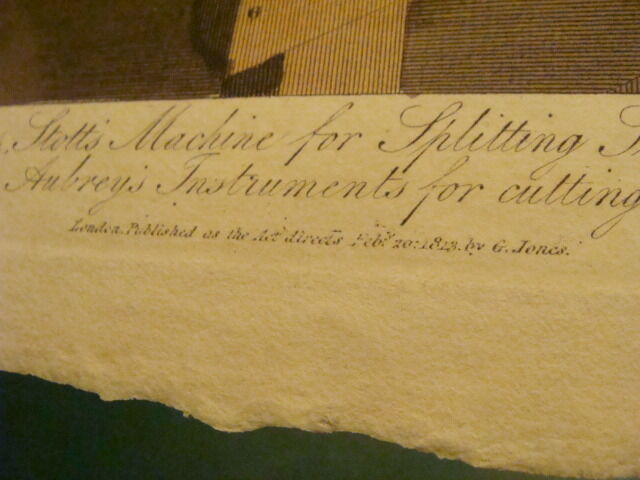 6
Stott's Machine for Splitting
Aubrey's Instruments for cutting
London, Published as the Act directs Feby. 20: 1813. by G. Jones.